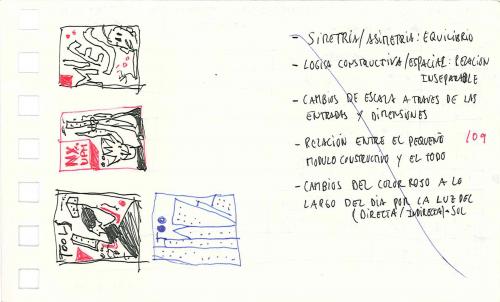 MUSEO
NY.
UPM
TOOLS
- SIMETRÍA/ASIMETRÍA: EQUILIBRIO
- LOGICA CONSTRUCTIVA/ESPACIAL: RELACION
INSEPARABLE
- CAMBIOS DE ESCALA A TRAVES DE LAS
ENTRADAS Y DIMENSIONES
- RELACIÓN ENTRE EL PEQUEÑO
MODULO CONSTRUCTIVO Y EL TODO
109
- CAMBIOS DEL COLOR ROJO A LO
LARGO DEL DIA POR LA LUZ DEL
(DIRECTA/INDIRECTA) SOL